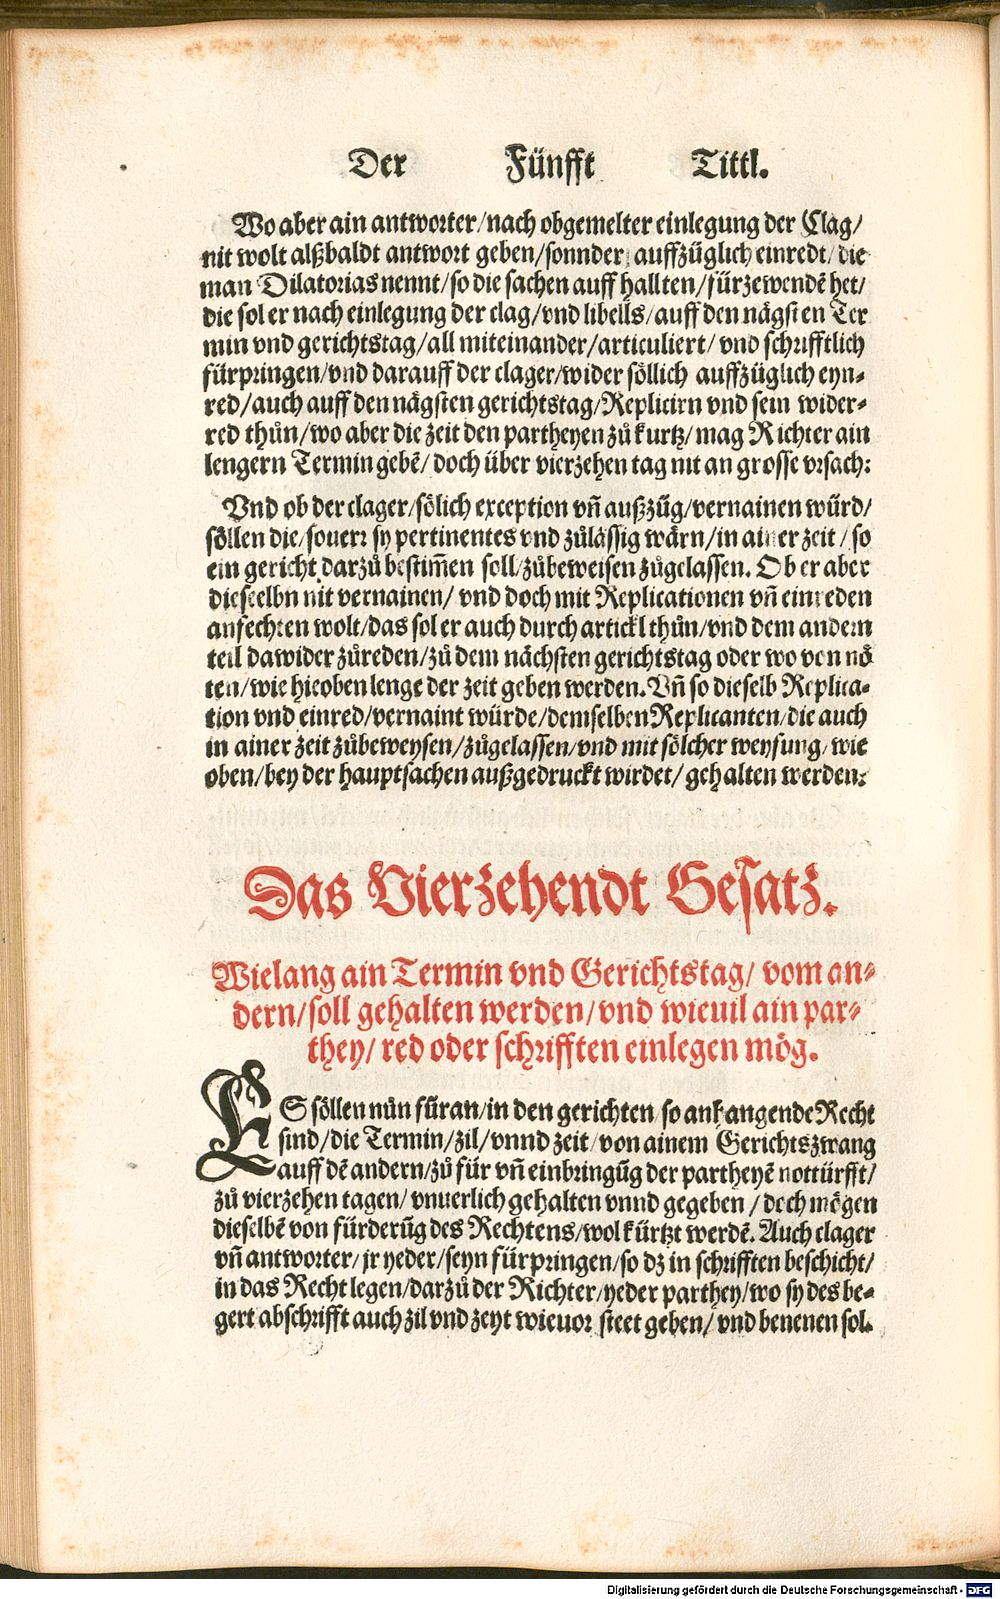 Der Fünfft Tittl.
Wo aber ain antworter/nach obgemelter einlegung der Clag/
nit wolt alßbaldt antwort geben/sonnder auffzüglich einredt/die
man Dilatorias nennt/so die sachen auff hallten/fürzewendē het/
die sol er nach einlegung der clag/vnd libells/auff den nägsten Ter
min vnd gerichtstag/all miteinander/articuliert/vnd schrifftlich
fürpringen/vnd darauff der clager/wider söllich auffzüglich eyn⸗
red/auch auff den nägsten gerichtstag/Replicirn vnd sein wider⸗
red thůn/wo aber die zeit den partheyen zů kurtz/mag Richter ain
lengern Termin gebē/doch über vierzehen tag nit an grosse vrsach:
Vnd ob der clager/sölich exception vn̄ außzüg/vernainen würd/
söllen die/souerr sy pertinentes vnd zůlässig wärn/in ainer zeit/so
ein gericht darzů bestim̄en soll/zůbeweisen zůgelassen. Ob er aber
dieselbn nit vernainen/vnd doch mit Replicationen vn̄ einreden
anfechten wolt/das sol er auch durch artickl thůn/vnd dem andern
teil dawider zůreden/zů dem nächsten gerichtstag oder wo von nö
ten/wie hieoben lenge der zeit geben werden. Vn̄ so dieselb Replica⸗
tion vnd einred/vernaint würde/demselben Replicanten/die auch
in ainer zeit zůbeweysen/zůgelassen/vnd mit sölcher weysung/wie
oben/bey der hauptsachen außgedruckt wirdet/gehalten werden:
Das Vierzehendt Gesatz.
Wielang ain Termin vnd Gerichtstag/vom an⸗
dern/soll gehalten werden/vnd wieuil ain par⸗
they/red oder schrifften einlegen mög.
ES söllen nůn füran/in den gerichten/so anhangende Recht
sind/die Termin/zil/vnnd zeit/von ainem Gerichtszwang
auff dē andern/zů für vn̄ einbringūg der partheyē nottürfft/
zů vierzehen tagen/vnuerlich gehalten vnnd gegeben/doch mögen
dieselbē von fürderūg des Rechtens/wol kürtzt werdē. Auch clager
vn̄ antworter/jr yeder/seyn fürpringen/so dz in schrifften beschicht/
in das Recht legen/darzů der Richter/yeder parthey/wo sy des be⸗
gert abschrifft auch zil vnd zeyt wieuor steet geben/vnd benenen sol.
Digitalisierung gefördert durch die Deutsche Forschungsgemeinschaft - DFG